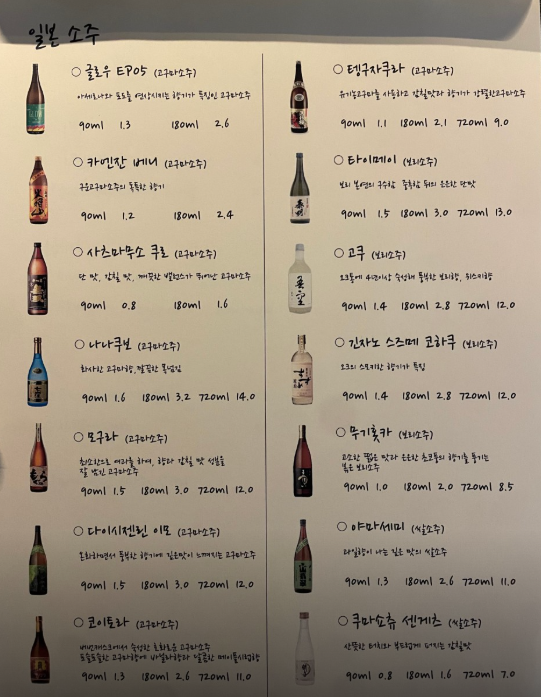 일본 소주
○ 글로우 EP05 (고구마소주)
아세로라와 포도를 연상시키는 향기가 특징인 고구마소주
90ml 1.3 180ml 2.6
○ 카엔잔 베니 (고구마소주)
구운고구마소주의 독특한 향기
90ml 1.2 180ml 2.4
○ 사츠마무소 쿠로 (고구마소주)
단 맛, 감칠 맛, 깨끗한 밸런스가 뛰어난 고구마소주
90ml 0.8 180ml 1.6
○ 나나쿠보 (고구마소주)
화사한 고구마향, 깔끔한 목넘김
90ml 1.6 180ml 3.2 720ml 14.0
○ 모구라 (고구마소주)
최소한으로 여과를 하여, 향과 감칠 맛 성분을
잘 남긴 고구마소주
90ml 1.5 180ml 3.0 720ml 12.0
○ 다이시젠린 이모 (고구마소주)
온화하면서 풍부한 향기에 깊은맛이 느껴지는 고구마소주
90ml 1.5 180ml 3.0 720ml 12.0
○ 코이토라 (고구마소주)
버번캐스크에서 숙성한 호화로운 고구마소주
포슬포슬한 고구마향에 바닐라향과 달콤한 메이플시럽향
90ml 1.3 180ml 2.6 720ml 11.0
○ 텐구자쿠라 (고구마소주)
유기농고구마를 사용하고 감칠맛과 향기가 강렬한고구마소주
90ml 1.1 180ml 2.1 720ml 9.0
○ 타이메이 (보리소주)
보리 본연의 구수함 중독함 뒤의 은은한 단맛
90ml 1.5 180ml 3.0 720ml 13.0
○ 고쿠 (보리소주)
오크통에 4년이상 숙성해 풍부한 보리향, 위스키향
90ml 1.4 180ml 2.8 720ml 12.0
○ 긴자노 스즈메 코하쿠 (보리소주)
오크의 스모키한 향기가 특징
90ml 1.4 180ml 2.8 720ml 12.0
○ 무기훗카 (보리소주)
고소한 짧은 맛과 은은한 초코풍의 향기를 풍기는
볶은 보리소주
90ml 1.0 180ml 2.0 720ml 8.5
○ 야마세미 (쌀소주)
과일향이 나는 깊은 맛의 쌀소주
90ml 1.3 180ml 2.6 720ml 11.0
○ 쿠마쇼츄 센게츠 (쌀소주)
산뜻한 터치와 부드럽게 퍼지는 감칠맛
90ml 0.8 180ml 1.6 720ml 7.0